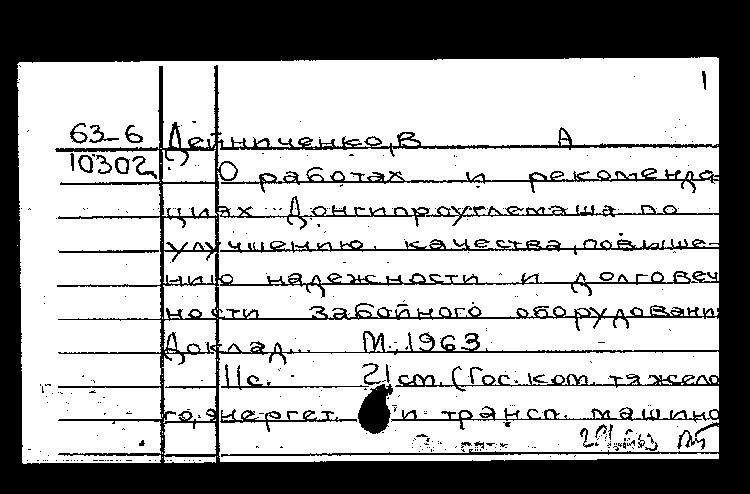 1
63-6 Дейниченко, В А
10302
О работах и рекоменда-
циях Донгипроуглемаша по
улучшению качества, повыше-
нию надежности и долговеч
ности забойного оборудовани
Доклад... М., 1963.
11с. 21см. (Гос. ком. тяжело
го, энергет. и трансп. машино